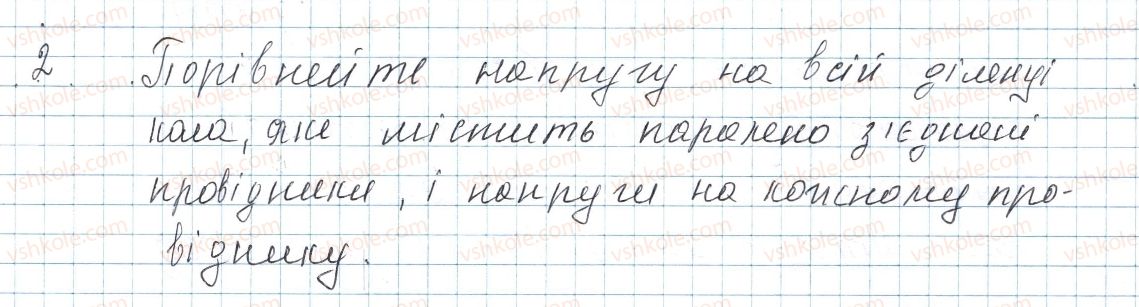 2. Порівнейте напругу на всій ділянці
кола, яке містить паралено з'єднані
провідники, і напруги на кожному про-
віднику.